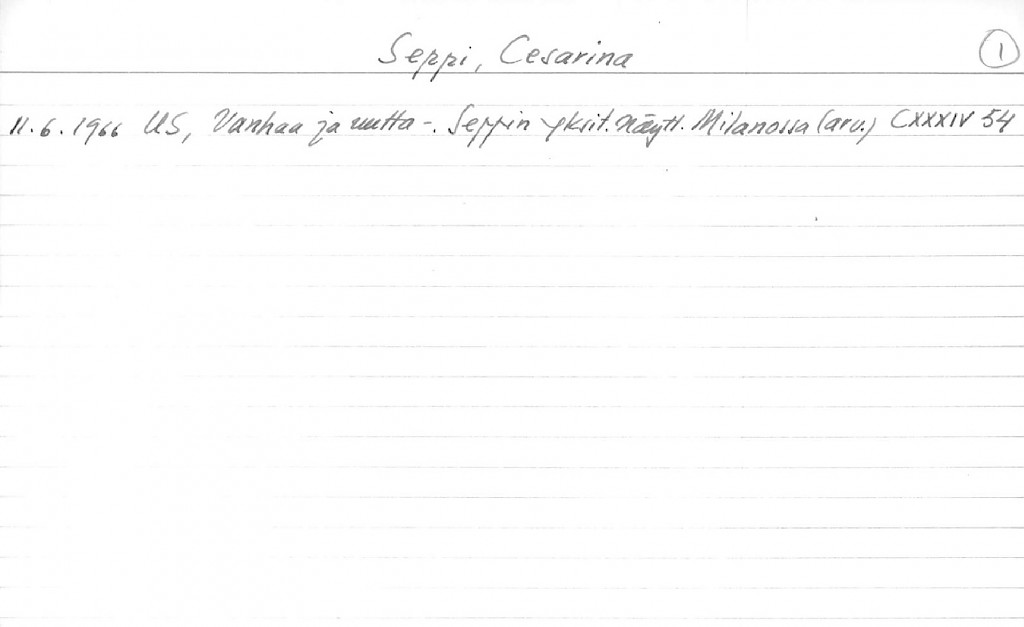 Seppi, Cesarina
1
11.6.1966 US, Vanhaa ja uutta -. Seppin yksit. näytt. Milanossa (arv.) CXXXIV 54